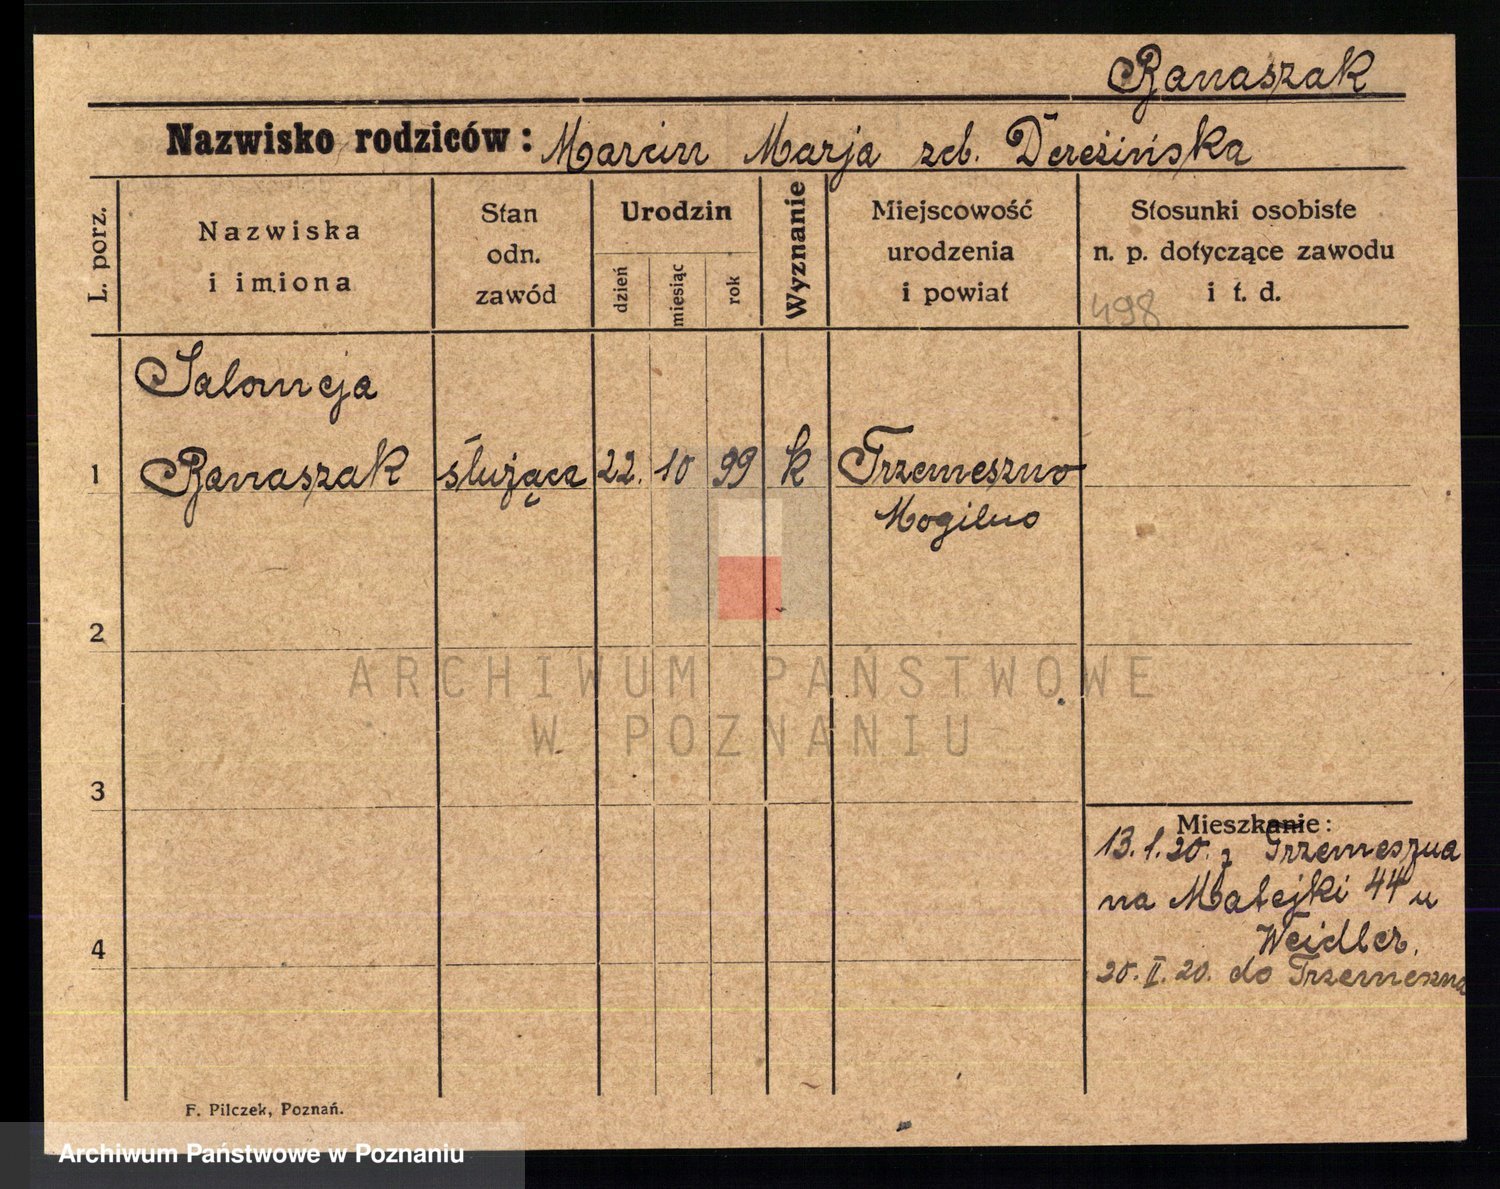 Banaszak
Nazwisko rodziców: Marcin Marja zd. Dereżińska
L. porz.
Nazwiska
i imiona
Stan
odn.
zawód
Urodzin
dzień
miesiąc
rok
Wyznanie
Miejscowość
urodzenia
i powiat
Stosunki osobiste
n. p. dotyczące zawodu
i t. d.
498
Salomeja
1 Banaszak służąca 22. 10 99 k Trzemeszno
Mogilno
2
3
4
Mieszkanie:
13.1.20. z Trzemeszna
na Matejki 44 u
Weidler.
20.II.20. do Trzemeszna
F. Pilczek, Poznań.
ARCHIWUM PAŃSTWOWE
W POZNANIU
Archiwum Państwowe w Poznaniu